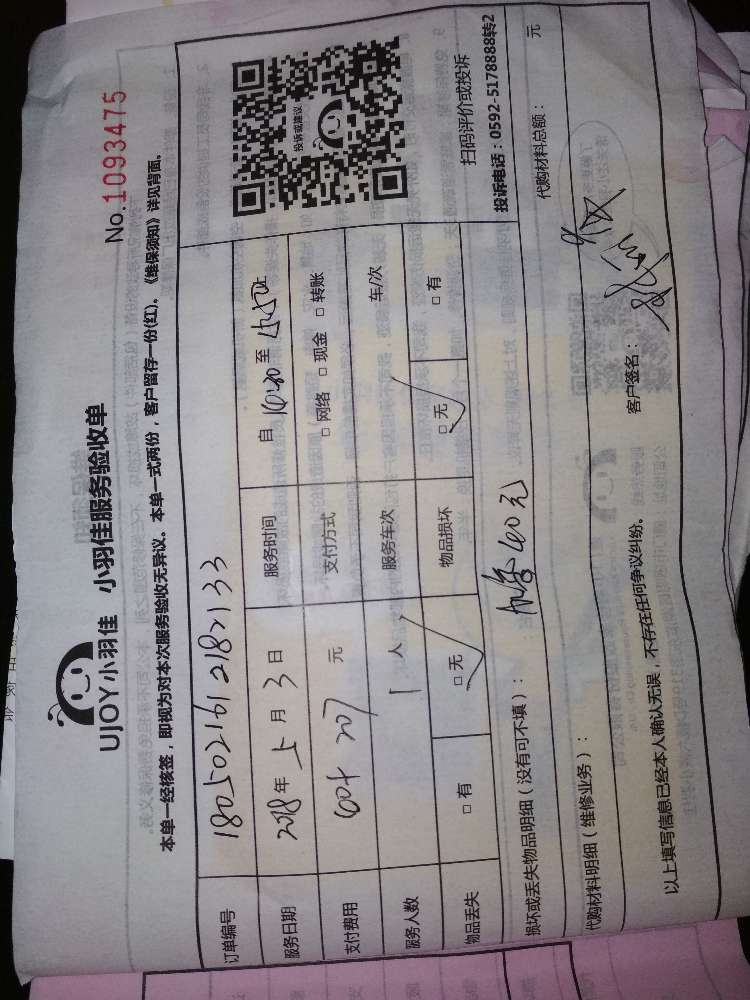 UJOY小羽佳 小羽佳服务验收单
No.1093475
本单一经核签，即视为对本次服务验收无异议。本单一式两份，客户留存一份(红)。《维保须知》详见背面。
订单编号 1805021612182133
服务日期 2018年5月3日 服务时间 自 至
支付费用 60+207 元 支付方式 □ 网络 □ 现金 □ 转账
服务人数 1 人 服务车次 车/次
物品丢失 □ 有 □ 无 物品损坏 □ 无 □ 有
投诉或建议
扫码评价或投诉
投诉电话：0592-5178888转2
损坏或丢失物品明细（没有可不填）： 60元
代购材料明细（维修业务）： 代购材料总额： 元
以上填写信息已经本人确认无误，不存在任何争议纠纷。 客户签名：